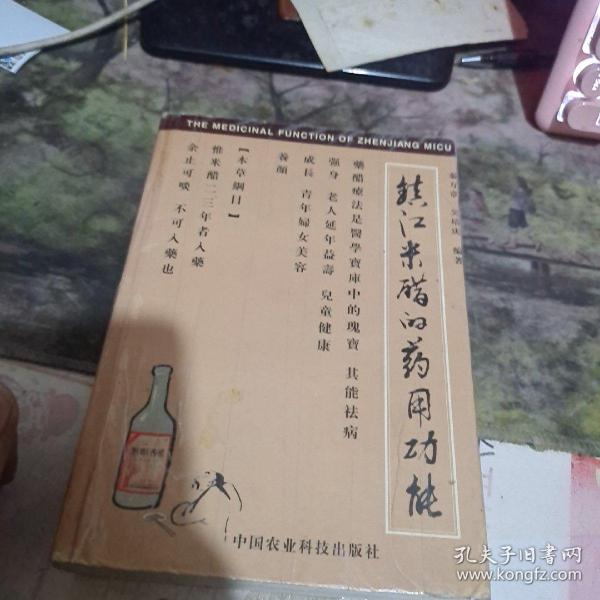 THE MEDICINAL FUNCTION OF ZHENJIANG MICU
编著
鎮江米醋的药用功能
藥醋療法是醫學寶庫中的瑰寶 其能祛病
强身 老人延年益壽 兒童健康
成長 青年婦女美容
養顔
【本草綱目】
惟米醋二三年者入藥
余止可啖 不可入藥也
中国农业科技出版社
孔夫子旧书网
www.kongfz.com